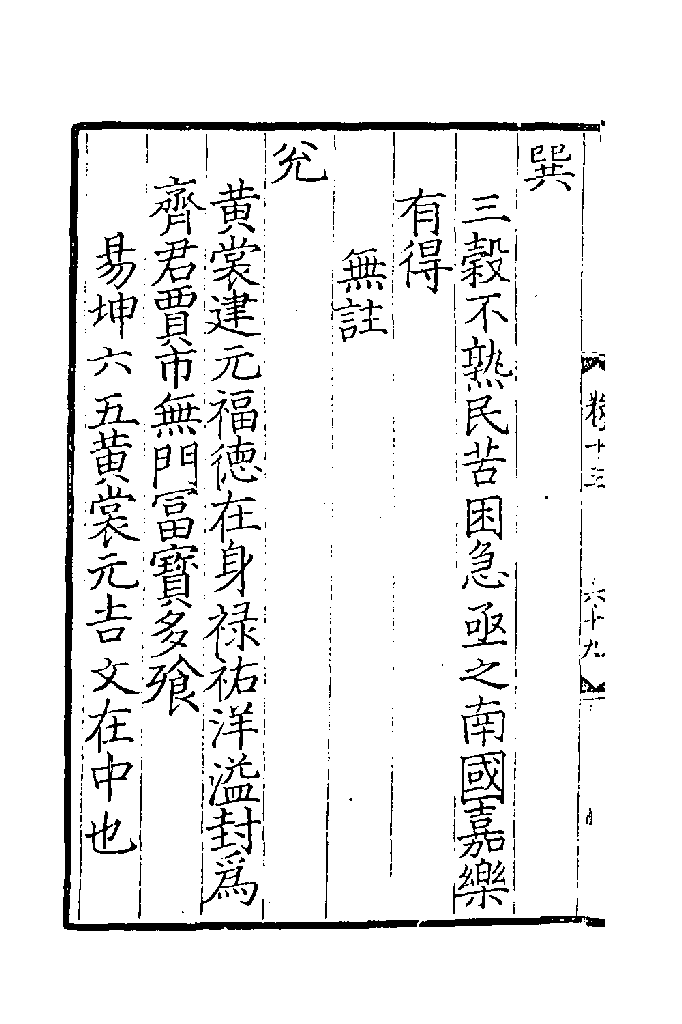 卷十三 六十九
巽
三穀不熟民苦困急亟之南國嘉樂
有得
無註
兊
黄裳建元福徳在身禄祐洋溢封爲
齊君賈市無門冨寶多飱
易坤六五黄裳元吉文在中也